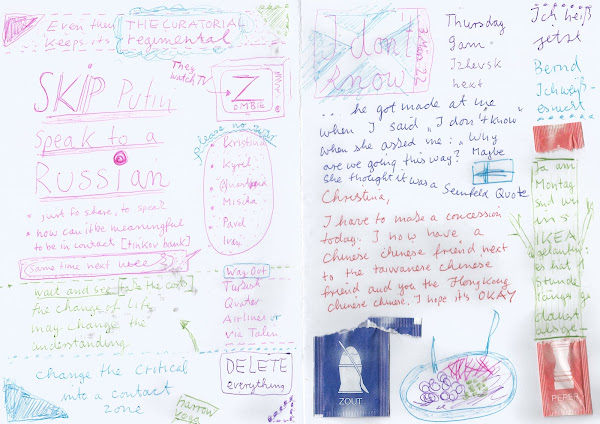 Even thu
keeps its
THE CURATORIAL
regimental
They
watch TV
Z
OMBIE
SKIP Putin
speak to a
Russian
• just to share, to speak
• how can it be meaningful
to be in contact [tinkov bank]
Same time next week
please no
• Kristina
• Kyrol
•
• Mischa
• Pavel
• Ines
wait and see
the change of life
may change the
understanding
Way Out
Turkish
Quater
Airlines or
via Talin
change the critical
into a contact
zone
narrow
DELETE
everything
I don't
know
3 May 22
Thursday
9am -
Izhevsk
next
... he got made at me
when I said „I don't know"
when she asked me: „Why
are we going this way? Maybe
she thought it was a Seinfeld Quote
Christina,
I have to make a concession
today. I now have a
chinese chinese friend next
to the taiwanese chinese
friend and you the HongKong
chinese chinese. I hope it's OKAY
ZOUT
Ich heiß
jetzt
Bernd
Ichweiß-
esnicht
Ja am
Montag
sind wir
ins
IKEA
gelantin:
es hat
Stunde
lange
PEPER